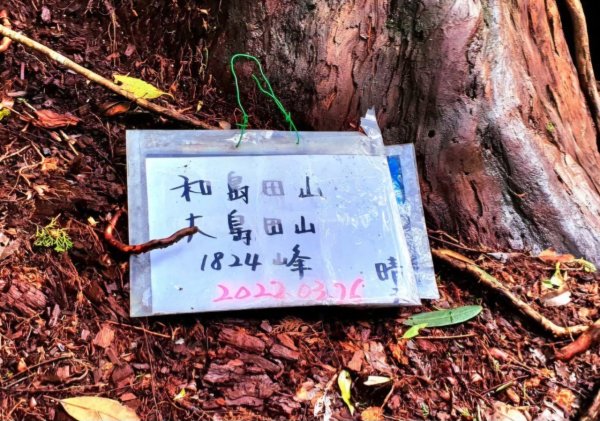 和島田山
木島田山
1824峰
晴
2022.03.26